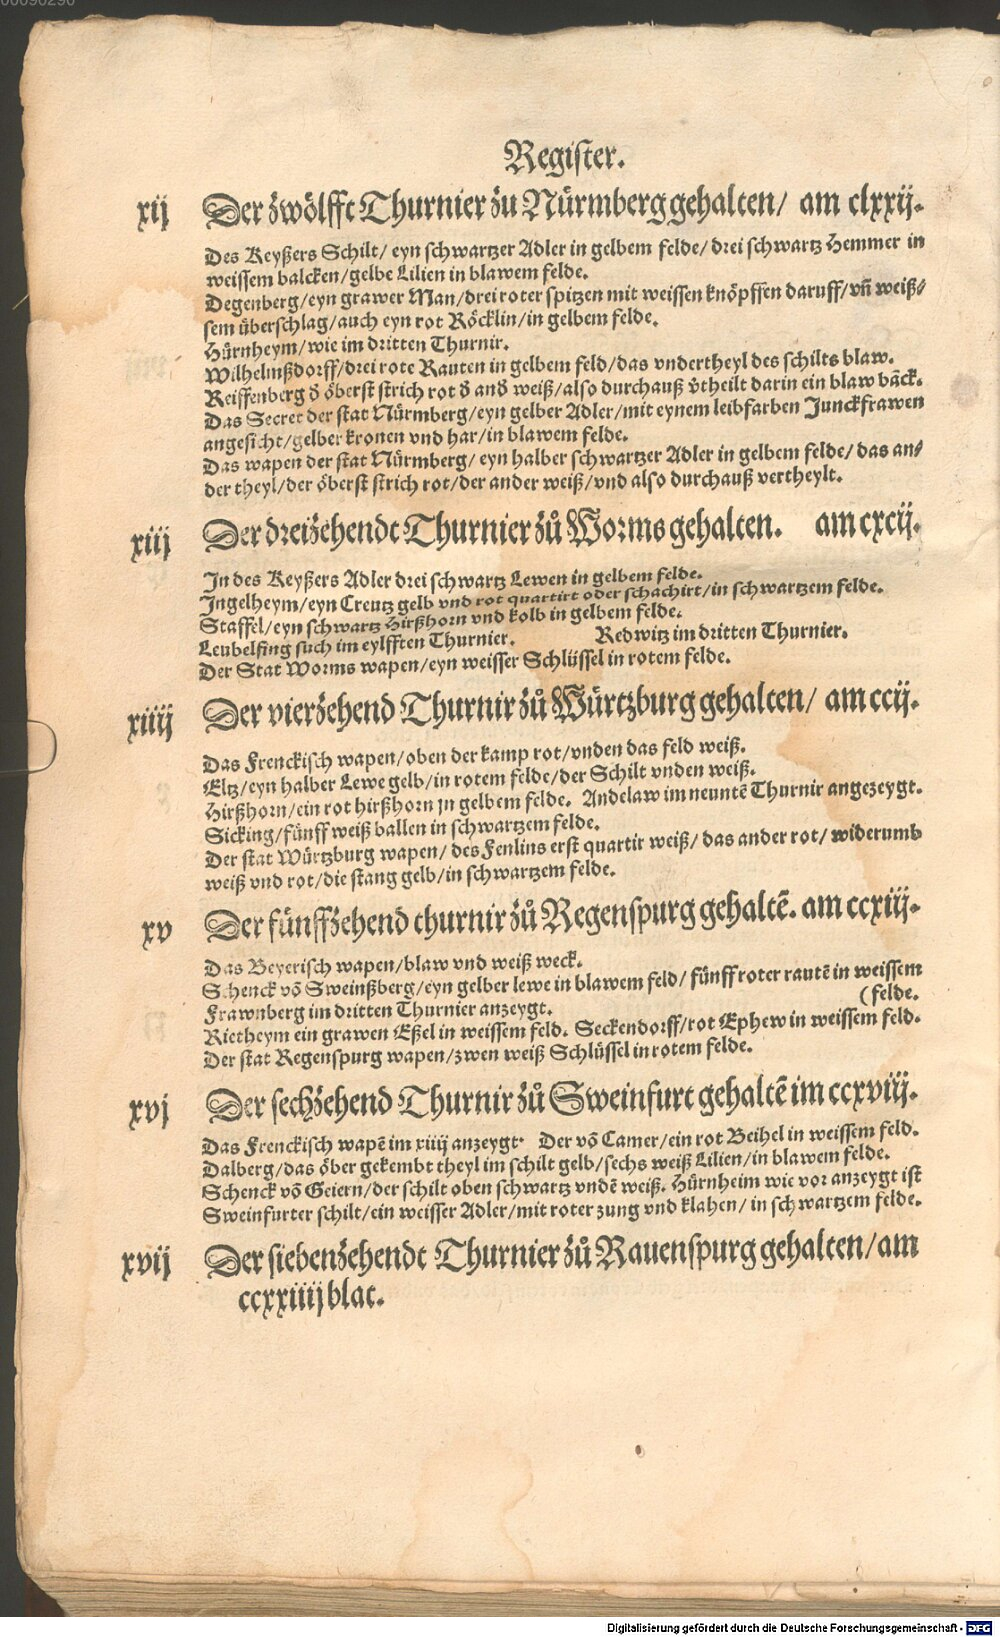 Register.
xij Der zwölfft Thurnier zu Nürmberg gehalten/ am clxxij.
Des Keyßers Schilt/ eyn schwartzer Adler in gelbem felde/ drei schwartz Hemmer in
weissem balcken/ gelbe Lilien in blawem felde.
Degenberg/ eyn grawer Man/ drei roter spitzen mit weissen knöpffen daruff/ vñ weiß-
sem überschlag/ auch eyn rot Röcklin/ in gelbem felde.
Hürnheym/ wie im dritten Thurnir.
Wilhelmßdorff/ drei rote Rauten in gelbem feld/ das vndertheyl des schilts blaw.
Reiffenberg d̄ öberst strich rot d̄ and̄ weiß/ also durchauß v̄theilt darin ein blaw bāck.
Das Secret der stat Nürmberg/ eyn gelber Adler/ mit eynem leibfarben Junckfrawen
angesicht/ gelber kronen vnd har/ in blawem felde.
Das wapen der stat Nürmberg/ eyn halber schwartzer Adler in gelbem felde/ das an-
der theyl/ der öberst strich rot/ der ander weiß/ vnd also durchauß vertheylt.
xiij Der dreizehendt Thurnier zů Worms gehalten. am cxcij.
In des Keyßers Adler drei schwartz Lewen in gelbem felde.
Ingelheym/ eyn Creutz gelb vnd rot quartirt oder schachirt/ in schwartzem felde.
Staffel/ eyn schwartz Hirßhorn vnd kolb in gelbem felde.
Leubelfing such im eylfften Thurnier. Redwitz im dritten Thurnier.
Der Stat Worms wapen/ eyn weisser Schlüssel in rotem felde.
xiiij Der vierzehend Thurnir zů Würtzburg gehalten/ am ccij.
Das Frenckisch wapen/ oben der kamp rot/ vnden das feld weiß.
Eltz/ eyn halber Lewe gelb/ in rotem felde/ der Schilt vnden weiß.
Hirßhorn/ ein rot hirßhorn jn gelbem felde. Andelaw im neuntē Thurnir angezeygt.
Sicking/ fünff weiß ballen in schwartzem felde.
Der stat Würtzburg wapen/ des Fenlins erst quartir weiß/ das ander rot/ widerumb
weiß vnd rot/ die stang gelb/ in schwartzem felde.
xv Der fünffzehend thurnir zů Regenspurg gehaltē. am ccxiij.
Das Beyerisch wapen/ blaw vnd weiß weck.
Schenck vō Sweinßberg/ eyn gelber lewe in blawem feld/ fünff roter rautē in weissem
(felde.
Frawnberg im dritten Thurnier anzeygt.
Rietheym ein grawen Eßel in weissem feld. Seckendorff/ rot Ephew in weissem feld.
Der stat Regenspurg wapen/ zwen weiß Schlüssel in rotem felde.
xvj Der sechzehend Thurnir zů Sweinfurt gehaltē im ccxviij.
Das Frenckisch wapē im xiiij anzeygt. Der vō Camer/ ein rot Beihel in weissem feld.
Dalberg/ das öber gekembt theyl im schilt gelb/ sechs weiß Lilien/ in blawem felde.
Schenck vō Geiern/ der schilt oben schwartz vndē weiß. Hürnheim wie vor anzeygt ist
Sweinfurter schilt/ ein weisser Adler/ mit roter zung vnd klahen/ in schwartzem felde.
xvij Der siebenzehendt Thurnier zů Rauenspurg gehalten/ am
ccxxiiij blat.
Digitalisierung gefördert durch die Deutsche Forschungsgemeinschaft - DFG